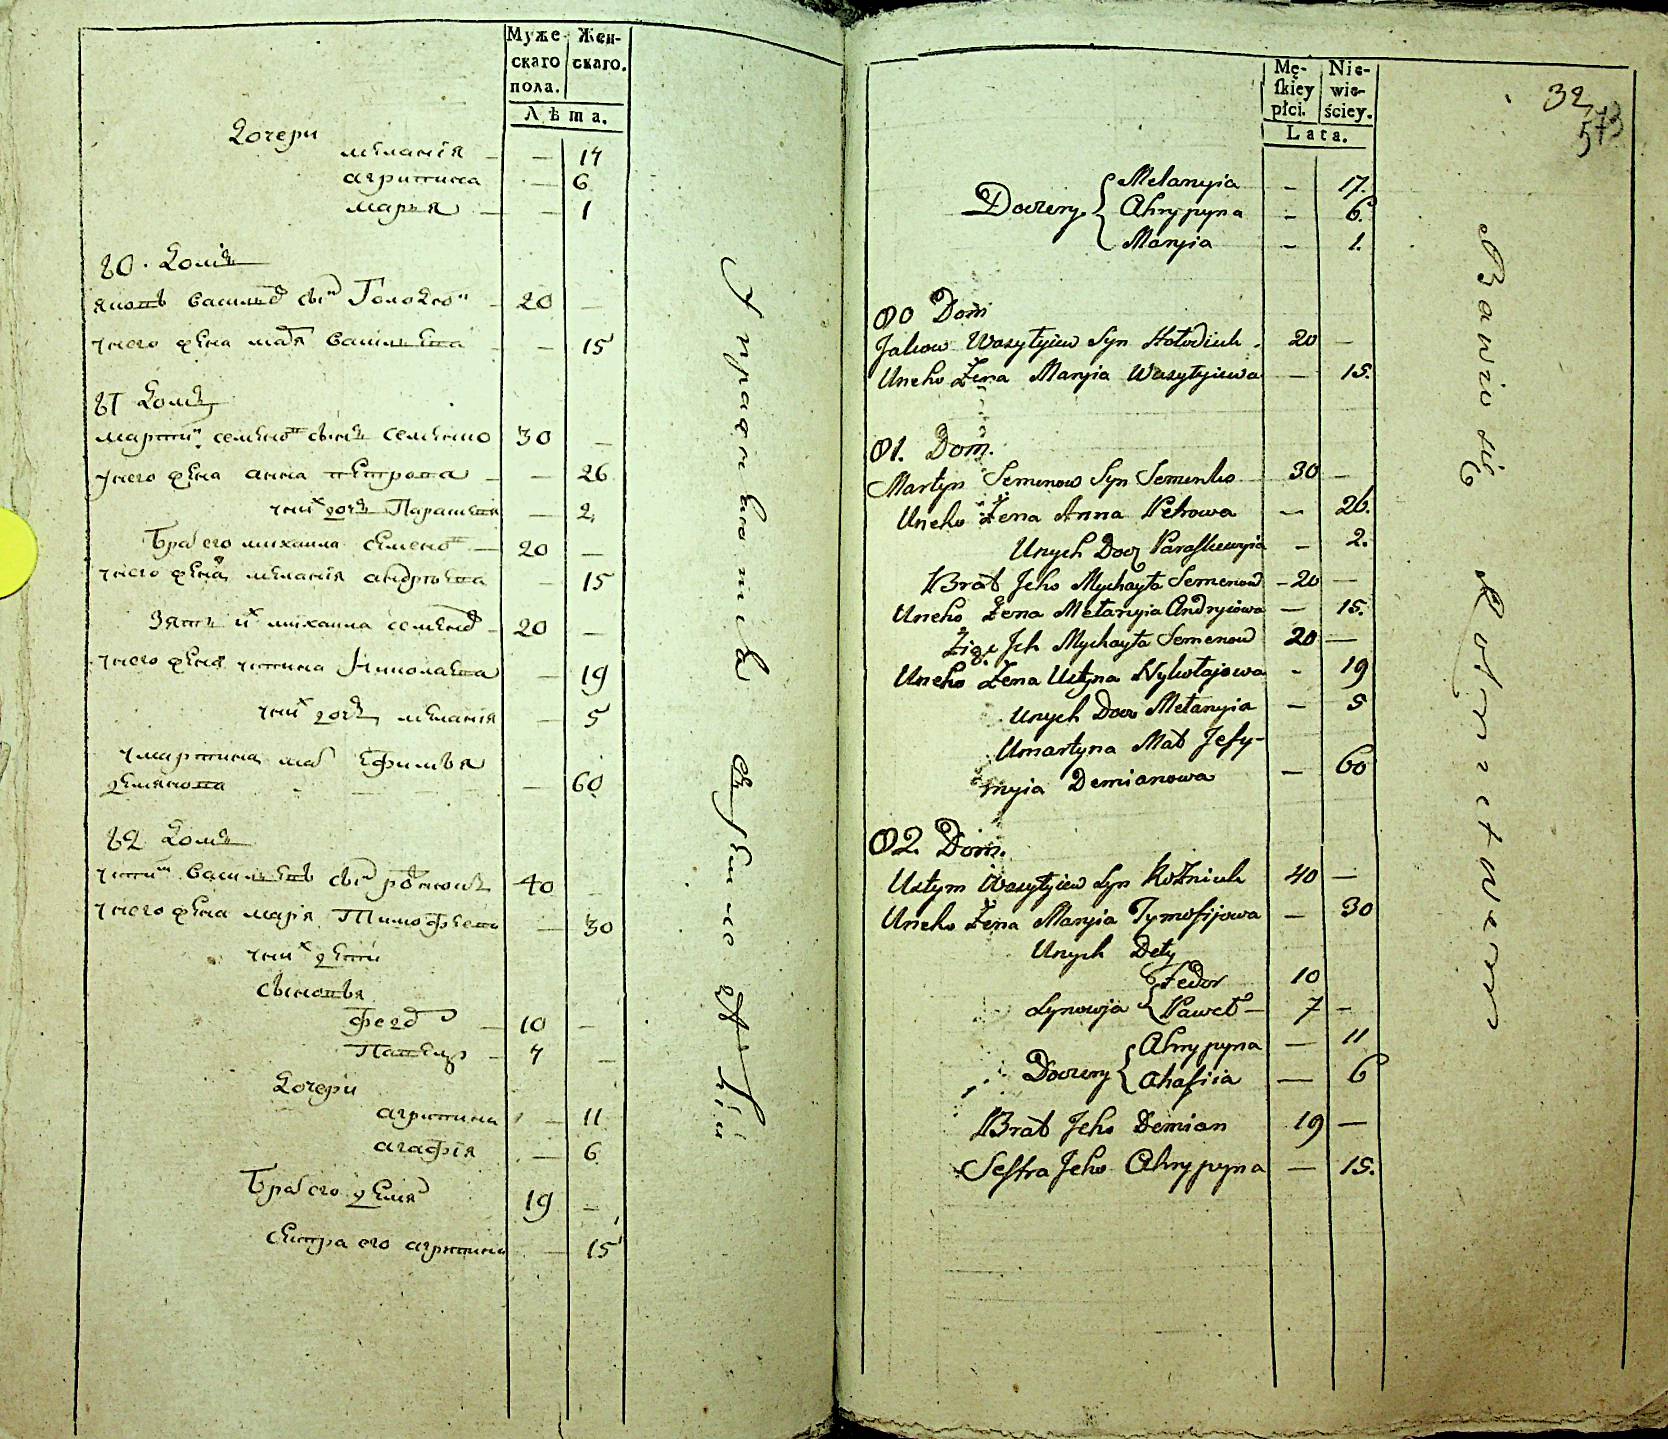 Муже-
скаго
пола.
Жен-
скаго.
Лѣта.
Дочери
меланія — — 17
агрипина — 6
марья — — 1
80. Домъ
яковъ василев сын Голодюк — 20 —
унего жена мария василева — — 15
81 Домъ
мартин семенов сынъ семенко 30 —
унего жена анна петрова — — 26
уних дочь Параскевия — 2
Брат его михаила семенов — 20 —
унего жена меланія андреева — 15
Зять их михаила семенов — 20 —
унего жена устина Николаева — 19
уних дочь меланія — 5
умартина мат Ефимья
демянова — 60
82 Домъ
устим василевъ сын 40 —
унего жена марія Тимофеева — 30
уних дети
сыновья
федор — 10 —
Павелъ — 7 —
Дочери
агрипина — 11
агафія — 6
Брат его демян 19 —
сестра его агрипина — 15
Мę-
skiey
płci.
Nie-
wie-
ściey.
Lata.
32
573
Doczery { Melanyia – 17.
Ahrypyna – 6.
Maryia – 1.
80 Dom
Jakow Wasylyiew Syn Hołodiuk. 20 —
Uneho Żena Maryia Wasylyiewa — 15.
81. Dom.
Martyn Semenow Syn Semenko 30 —
Uneho Żena Anna Petrowa — 26.
Unych Docz Paraskewyia — 2.
Brat Jeho Mychayła Semenow – 20 —
Uneho Żena Mełanyia Andryiowa — 15.
Zięć Jch Mychayła Semenow 20 —
Uneho Żena Ustyna Nykołajowa – 19
Unych Docz Mełanyia – 5
Umartyna Mat Jefy-
myia Demianowa — 60
82. Dom.
Ustym Wasylyiew Syn Koźniuk 40 —
Uneho Żena Maryia Tymofijowa — 30
Unych Dety
Synowja { Fedor 10
Paweł — 7 –
Doczery { Ahrypyna — 11
Ahafiia — 6
Brat Jeho Demian 19 —
Sestra Jeho Ahrypyna — 15.